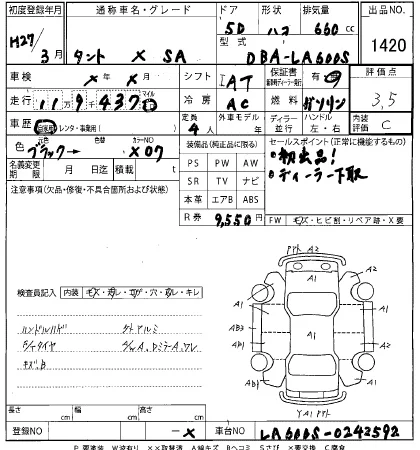 初度登録年月 通称車名・グレード ドア 形状 排気量 出品No.
H27/3月 タント X SA 5D ハコ 660cc 1420
型式 DBA-LA600S
車検 ×年 ×月 シフト IAT 保証書 有・無 評価点
走行 11万9437 マイル 冷房 AC 燃料 ガソリン 3,5
車歴 自家用・レンタ・事業用( ) 定員 4人 外車モデル 年 ディーラー 並行 ハンドル 左・右 内装評価 C
色 元色 ブラック→ 色替 カラーNO X07 装備品(純正品に限る) セールスポイント(正常に機能するもの)
名義変更期限 月 日迄 積載 t PS PW AW ●初出品!
注意事項(欠品・修復・不具合箇所および状態) SR TV ナビ ●ディーラー下取
本革 エアB ABS
R券 9,550円 FW キズ・ヒビ割・リペア跡・X要
検査員記入 内装 キズ・汚レ・コゲ・穴・切レ・キレ
ハンドルハゲ 外アルミ
キズ、B
アト A2
A1 A2
AB1 A1 A1
AB3 A1
A2
アト
長さ cm 幅 cm 高さ cm
登録NO ー× 車台NO LA600S-0242592
P 要塗装 W波有り ××取替済 A線キズ Bヘコミ Sサビ X交換 C腐食